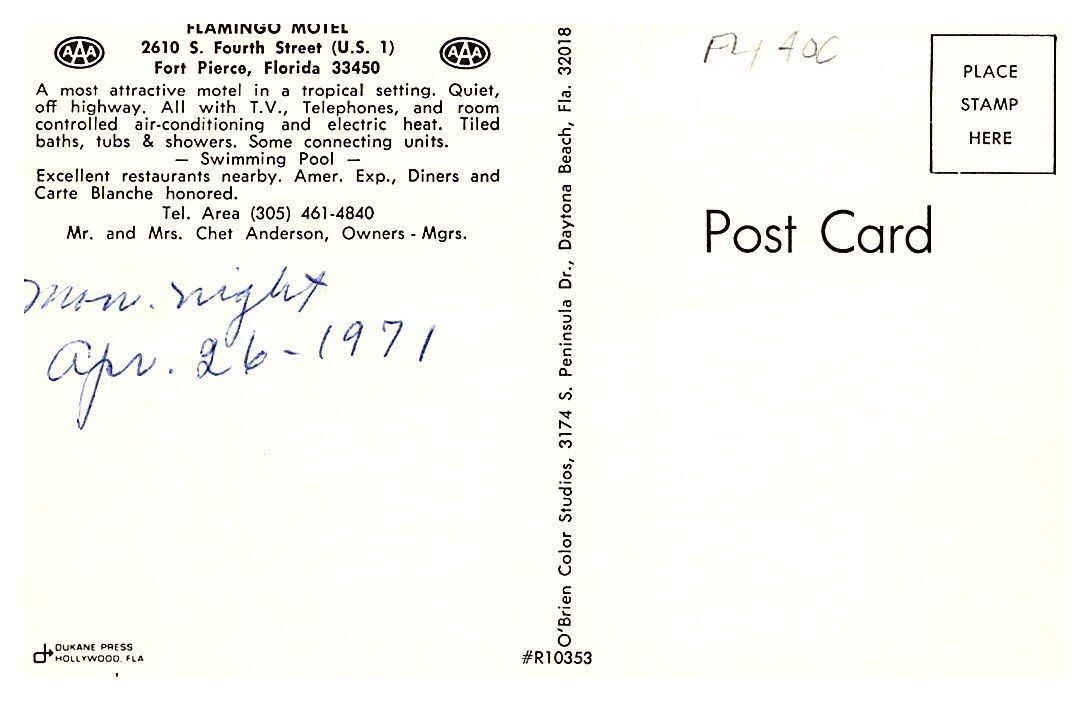 FLAMINGO MOTEL
AAA 2610 S. Fourth Street (U.S. 1) AAA
Fort Pierce, Florida 33450
A most attractive motel in a tropical setting. Quiet,
off highway. All with T.V., Telephones, and room
controlled air-conditioning and electric heat. Tiled
baths, tubs & showers. Some connecting units.
— Swimming Pool —
Excellent restaurants nearby. Amer. Exp., Diners and
Carte Blanche honored.
Tel. Area (305) 461-4840
Mr. and Mrs. Chet Anderson, Owners - Mgrs.
Mon. night
Apr. 26-1971
DUKANE PRESS
HOLLYWOOD, FLA
O'Brien Color Studios, 3174 S. Peninsula Dr., Daytona Beach, Fla. 32018
#R10353
PLACE
STAMP
HERE
Post Card